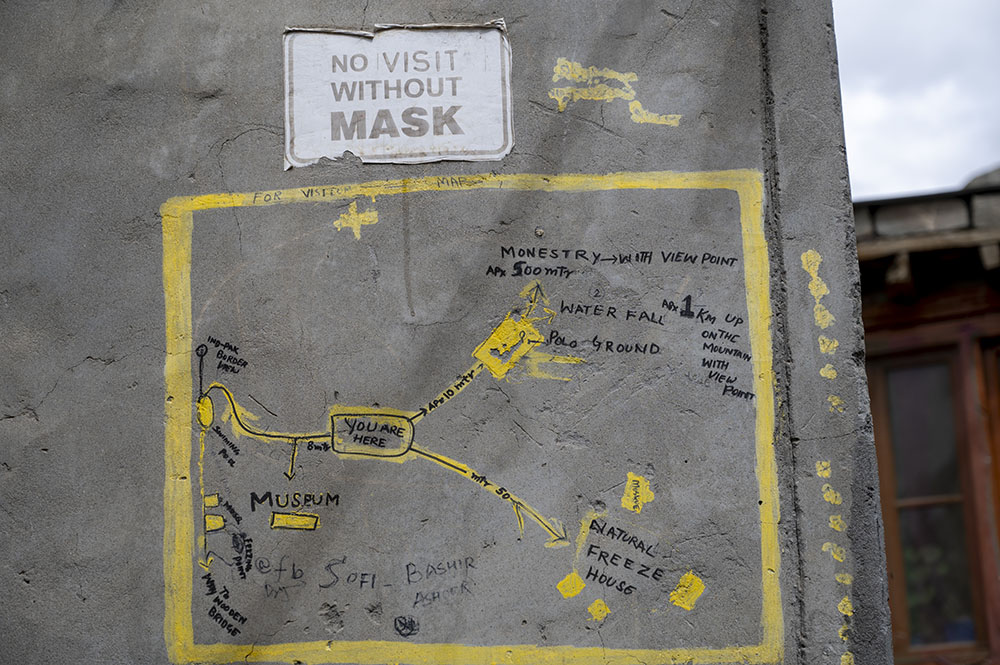 NO VISIT
WITHOUT
MASK
FOR VISITOR MAP
MONESTRY → WITH VIEW POINT
APX 500 mtr
2
WATER FALL
APX 1 KM UP
ON THE
MOUNTAIN
WITH
VIEW
POINT
POLO GROUND
IND-PAK
BORDER
VIEW
APX 10 mtr
YOU ARE
HERE
8 mtr
SWIMMING
POOL
mtr 50
MUSEUM
NATURAL
FREEZE
HOUSE
@fb SOFI - BASHIR
ASHOOR
WAY TO
WOODEN
BRIDGE